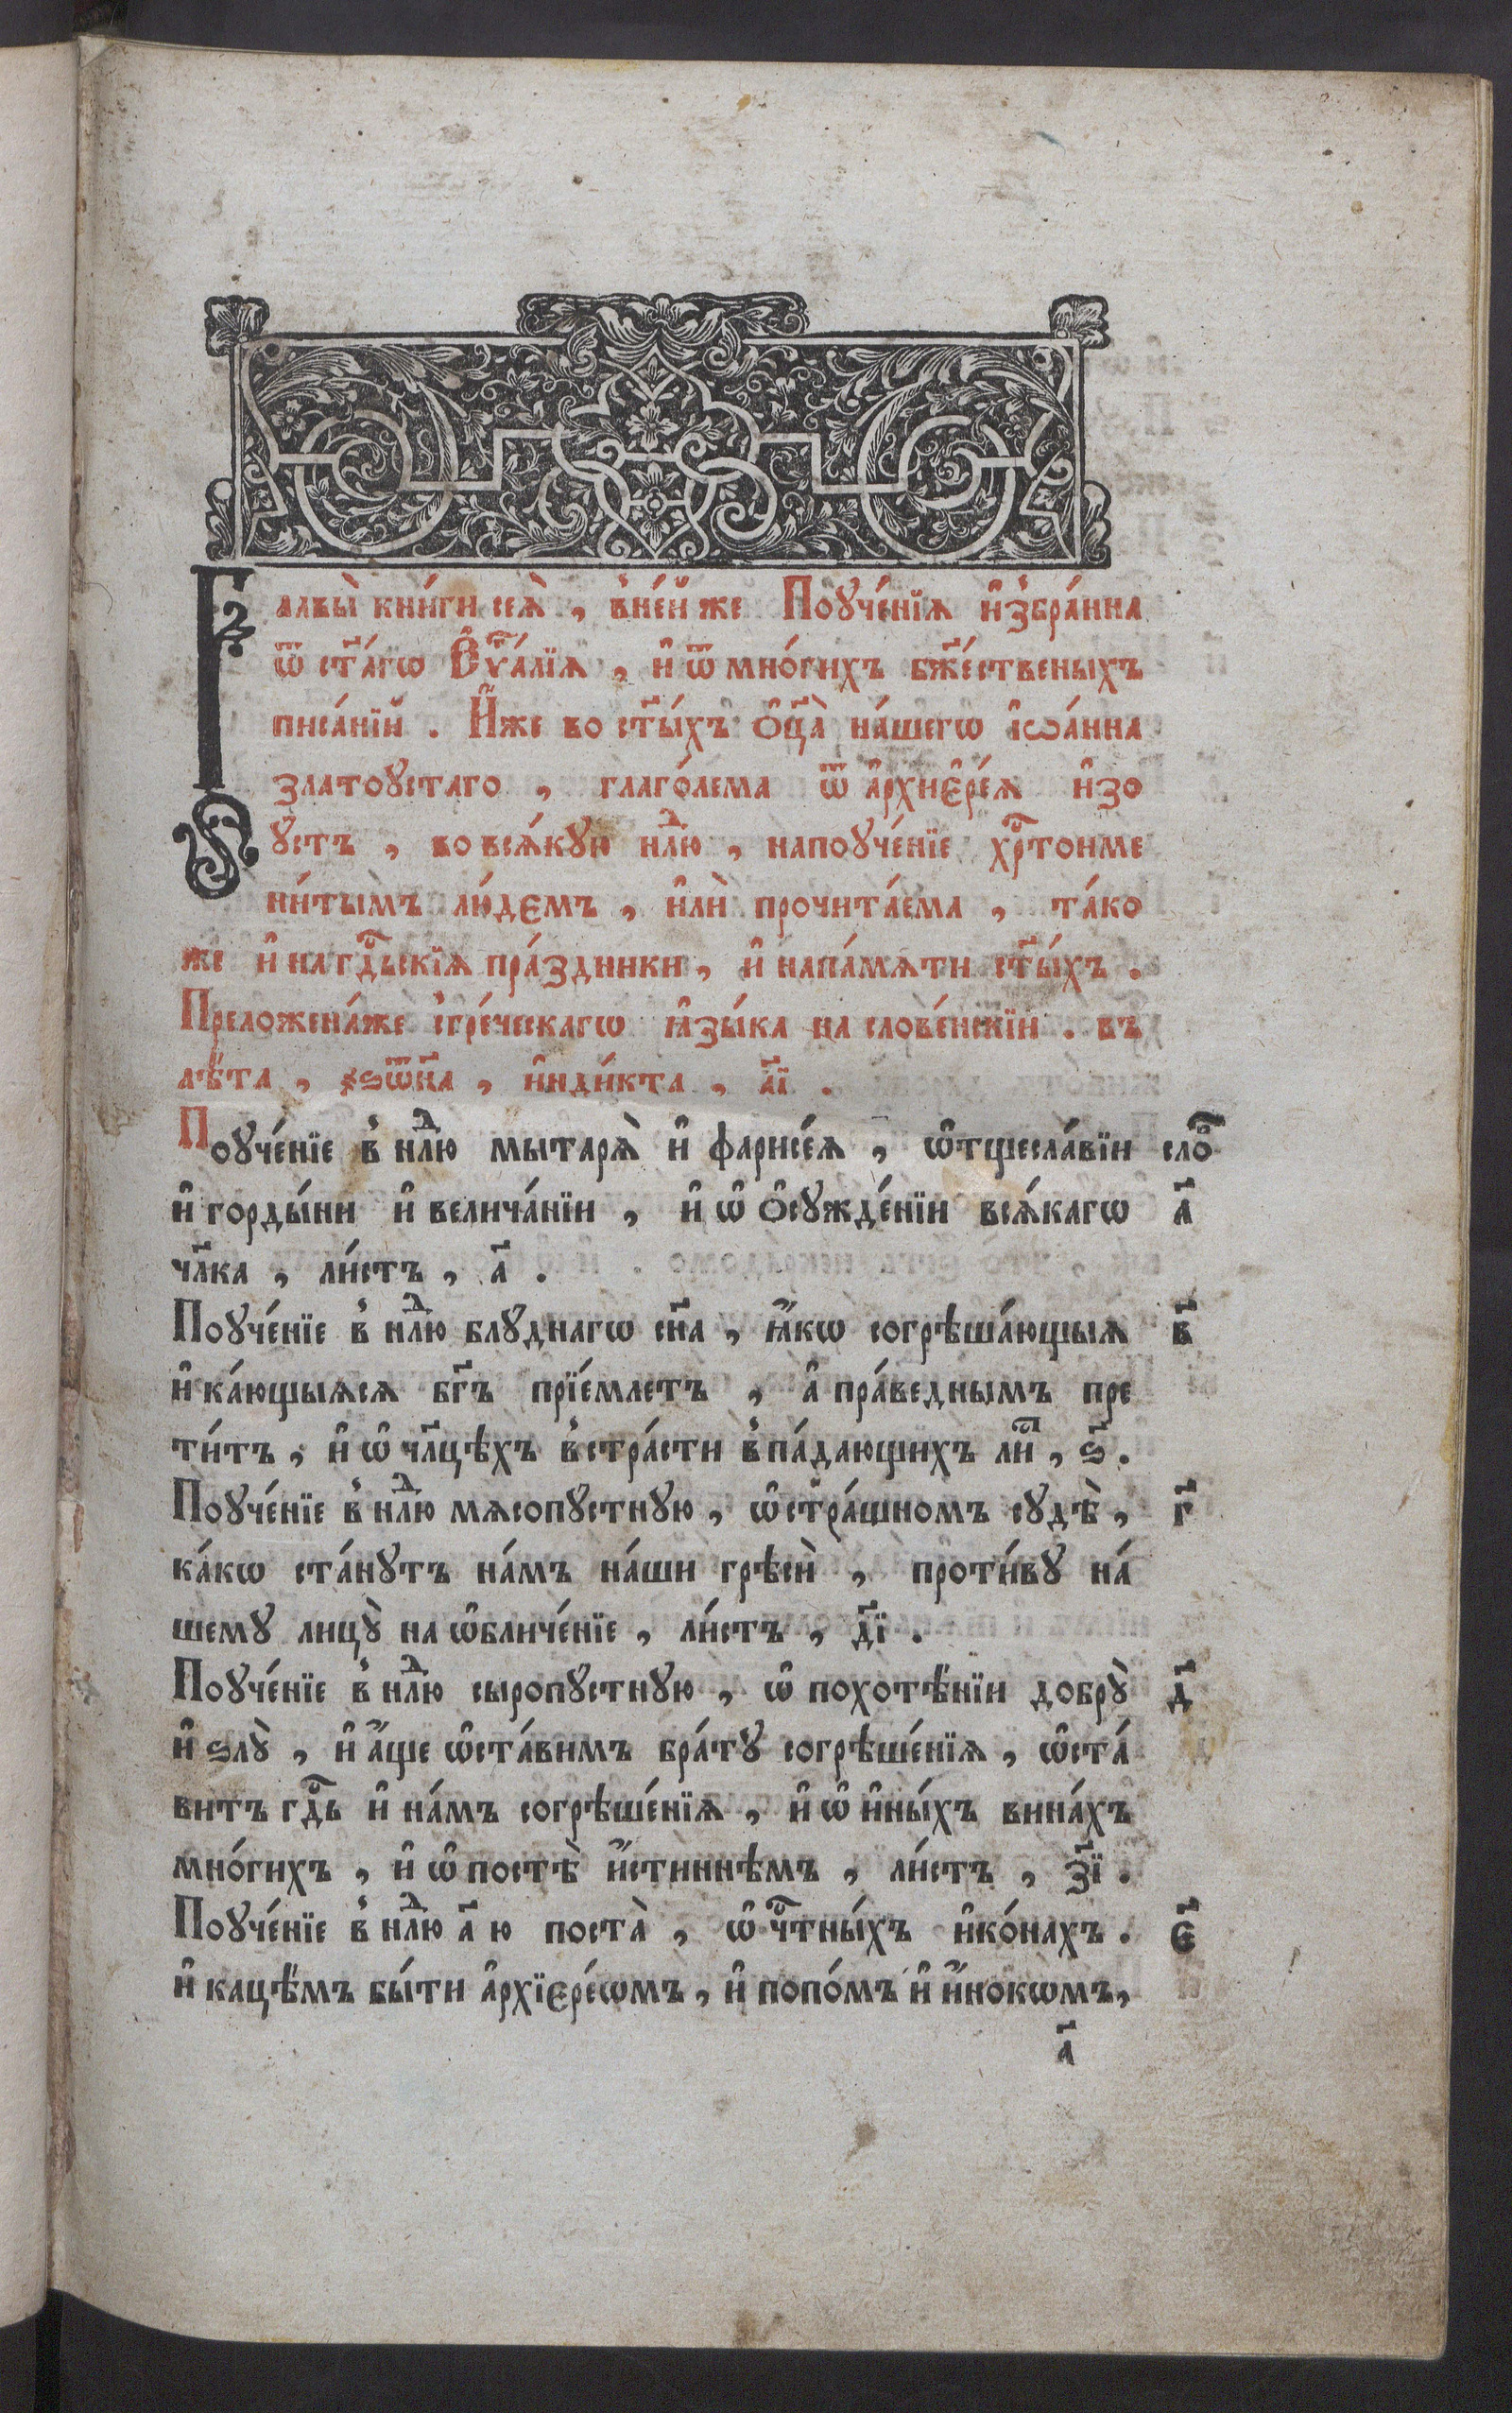 Главы̀ кни́ги сея̀, в̾не́й же Поуче́нїѧ и҆збра́нна
ѿ ст҃а́гѡ Є҆ѵⷢ҇а́лїѧ, и҆ ѿ мно́гихъ бж҃е́ственыхъ
писа́нїй. И҆́же во ст҃ы́хъ ѻ҆ц҃а̀ на́шегѡ і҆ѡа́нна
златоꙋстаго, глаго́лема ѿ а҆рхие҆ре́ѧ и҆зо
ꙋстъ, во всѧ́кꙋю нлⷣю, напоꙋче́нїе хрⷭ҇тоиме
ни́тымъ лю́демъ, и҆лѝ прочита́ема, та́ко
же и҆ на гдⷭ҇ьскїѧ пра́здники, и҆ напа́мѧти ст҃ы́хъ.
Преложена́же з̾гре́ческагѡ ꙗ҆зы́ка на слове́нскїи. въ
лѣ́та, ҂ѕѿн҃а, и҆нди́кта, а҃ї.
Поꙋче́нїе в̾ нлⷣю мытарѧ̀ и҆ фарисе́ѧ, ѡ҆тщесла́вїи сло
и҆ горды́ни и҆ велича́нїи, и҆ ѡ҆ ѻ҆сꙋжде́нїи всѧ́кагѡ а҃
чл҃ка, ли́стъ, а҃.
Поꙋче́нїе в̾ нлⷣю блꙋднагѡ сн҃а, ꙗ҆́кѡ согрѣша́ющыѧ в҃
и҆ ка́ющыѧсѧ бг҃ъ прїе́млетъ, а҆ пра́веднымъ пре
ти́тъ, и҆ ѡ҆ чл҃цѣхъ в̾стра́сти в̾па́дающихъ лиⷭ҇, ѕ҃.
Поꙋче́нїе в̾ нлⷣю мѧсопꙋстнꙋю, ѡ҆стра́шномъ сꙋдѣ̀, г҃
ка́кѡ ста́нꙋтъ на́мъ на́ши грѣсѝ, проти́вꙋ на́
шемꙋ лицꙋ̀ на ѡ҆бличе́нїе, ли́стъ, д҃ї.
Поꙋче́нїе в̾ нлⷣю сыропꙋстнꙋю, ѡ҆ похотѣ́нїи добрꙋ̀ д҃
и҆ ѕлꙋ̀, и҆ а҆́ще ѡ҆ста́вимъ бра́тꙋ согрѣше́нїѧ, ѡ҆ста́
витъ гдⷭ҇ь и҆ на́мъ согрѣше́нїѧ, и҆ ѡ҆ и҆ны́хъ вина́хъ
мно́гихъ, и҆ ѡ҆ постѣ̀ и҆́стиннѣмъ, ли́стъ, з҃ї.
Поꙋче́нїе в̾ нлⷣю а҃ ю поста̀, ѡ҆ чⷭ҇тны́хъ и҆ко́нахъ. є҃
и҆ кацѣ́мъ бы́ти а҆рхїере́ѡмъ, и҆ попо́мъ и҆ и҆́нокѡмъ,
а҃